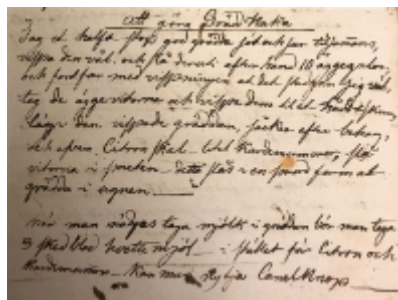 att göra Grädd Kaka
Tag et halft stop god grädda söt och par
vispa den väl, och slå deruti efter hand 10 äggegulor,
och fortfar med vispningen at det
tag de äggevitorna och vispa dem til et
den vispade gräddan, såcker efter behag,
och refven Citron skal litet Kardemomma, slå
vitorna i smeten detta slås i en form at
grädda i ugnen.
När man nödgas taga mjölk i gräddan bör man taga
3 skedblad hvete mjöl i stället för Citron och
Kardemomma Kan man nytja Canel Knop